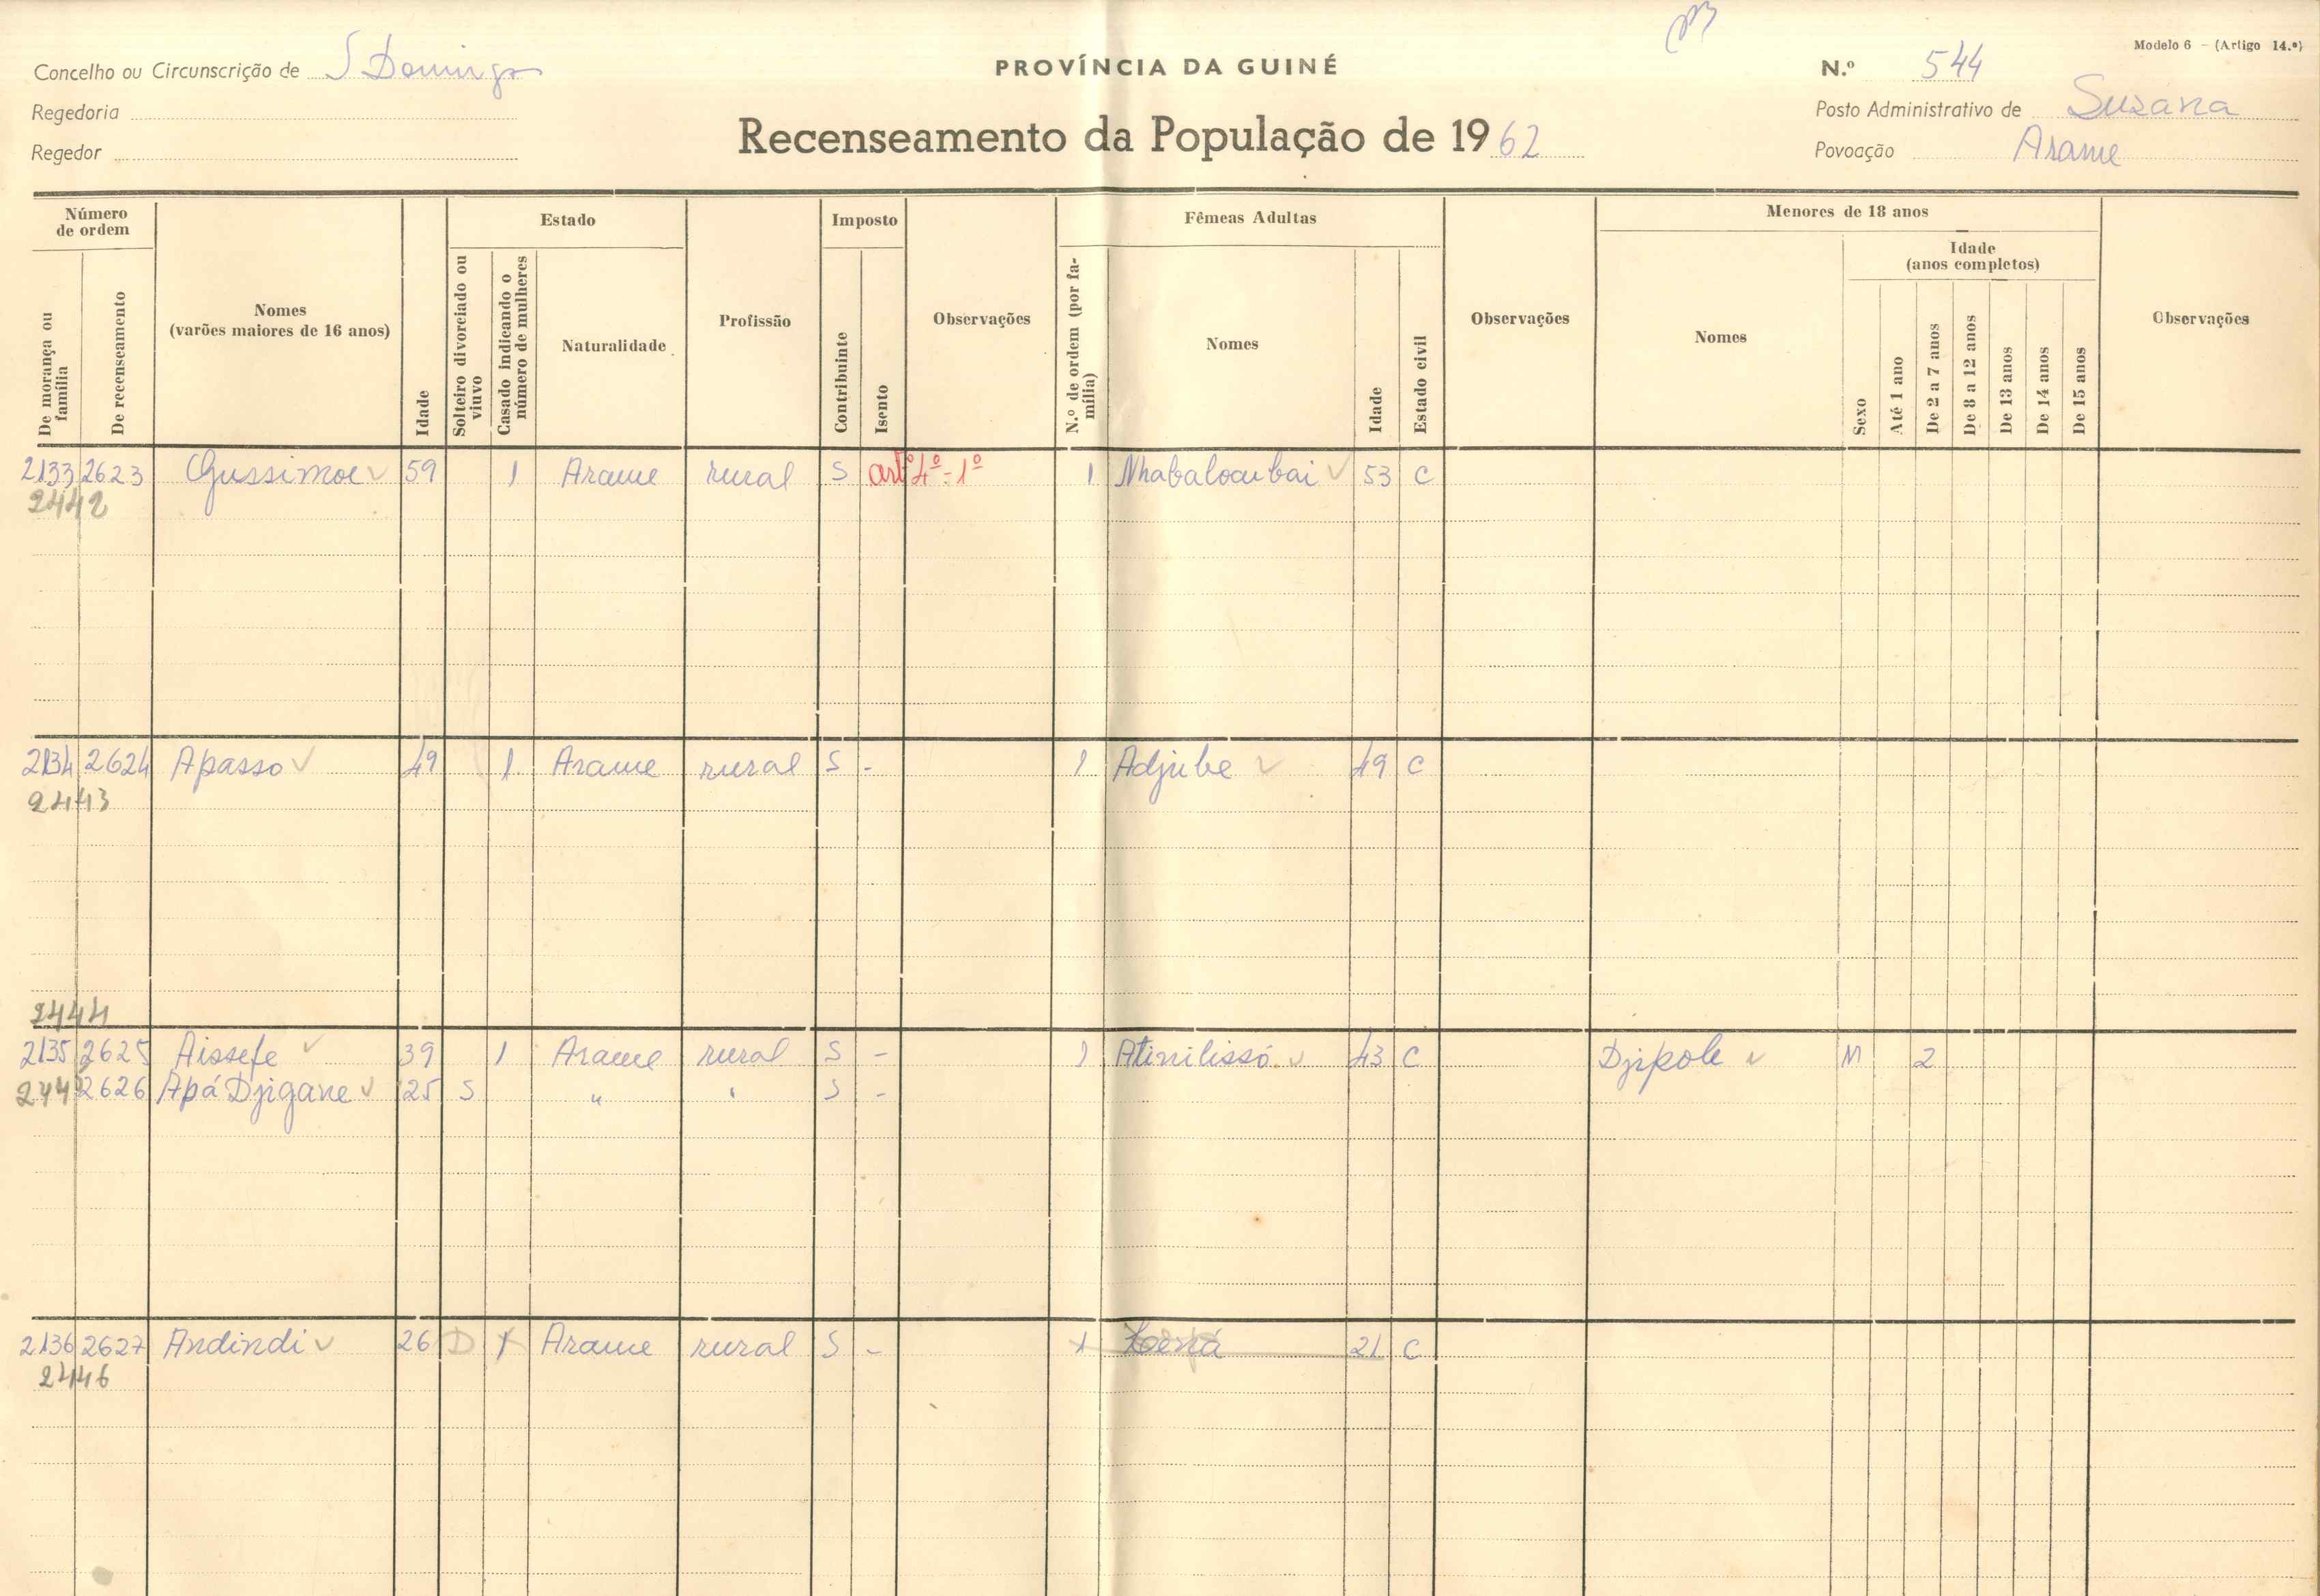 Modelo 6 - (Artigo 14.º)
Concelho ou Circunscrição de S Domingos
PROVÍNCIA DA GUINÉ
N.º 544
Regedoria
Posto Administrativo de Suzana
Regedor
Recenseamento da População de 1962
Povoação Arame
Número de ordem
De morança ou família
De recenseamento
Nomes
(varões maiores de 16 anos)
Idade
Estado
Solteiro divorciado ou viuvo
Casado indicando o número de mulheres
Naturalidade
Profissão
Imposto
Contribuinte
Isento
Observações
Fêmeas Adultas
N.º de ordem (por família)
Nomes
Idade
Estado civil
Observações
Menores de 18 anos
Nomes
Sexo
Idade
(anos completos)
Até 1 ano
De 2 a 7 anos
De 8 a 12 anos
De 13 anos
De 14 anos
De 15 anos
Observações
2133 2623 Gussimoe 59 1 Arame rural S artº 4º - 1º 1 Nhabalocubai 53 C
2442
2134 2624 Apasso 49 1 Arame rural S - 1 Adjube 49 C
2443
2444
2135 2625 Aissefe 39 1 Arame rural S - 1 Atinilissó 43 C Djipole M 2
244 2626 Apá Djigane 25 S " " S -
2136 2627 Andindi 26 D 1 Arame rural S - 1 21 C
2446